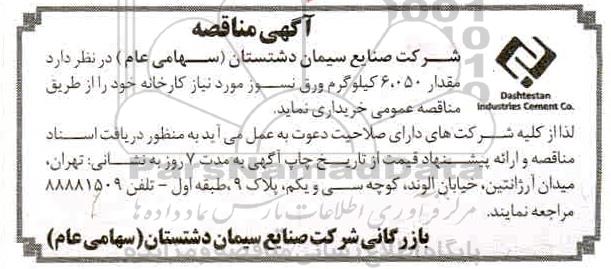 آگهی مناقصه
شرکت صنایع سیمان دشتستان (سهامی عام) در نظر دارد
مقدار ۶،۰۵۰ کیلوگرم ورق نسوز مورد نیاز کارخانه خود را از طریق
مناقصه عمومی خریداری نماید.
Dashtestan
Industries Cement Co.
لذا از کلیه شرکت های دارای صلاحیت دعوت به عمل می آید به منظور دریافت اسناد
مناقصه و ارائه پیشنهاد قیمت از تاریخ چاپ آگهی به مدت ۷ روز به نشانی: تهران،
میدان آرژانتین، خیابان الوند، کوچه سی و یکم، پلاک ۹، طبقه اول - تلفن ۸۸۸۸۱۵۰۹
مراجعه نمایند.
بازرگانی شرکت صنایع سیمان دشتستان (سهامی عام)
ParsNamadData
مرکز فرآوری اطلاعات پارس نماد داده ها